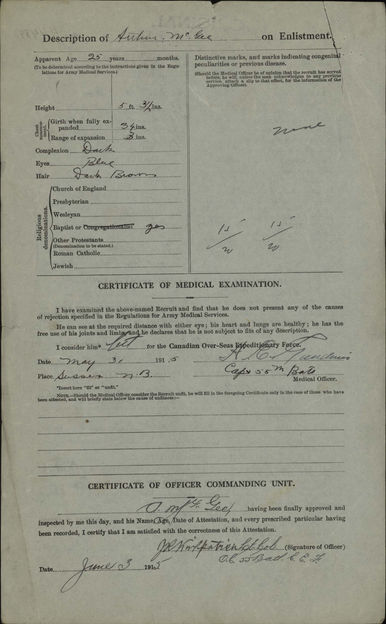 Description of Arthur McGee on Enlistment.
Apparent Age 25 years months.
(To be determined according to the instructions given in the Regulations for Army Medical Services.)
Distinctive marks, and marks indicating congenital peculiarities or previous disease.
(Should the Medical Officer be of opinion that the recruit has served before, he will, unless the man acknowledges to any previous service, attach a slip to that effect, for the information of the Approving Officer).
Height 5 ft. 3 1/2 ins.
Chest measurement
Girth when fully expanded 34 ins.
Range of expansion 3 ins.
Complexion Dark
Eyes Blue
Hair Dark Brown
None
Religious denominations.
Church of England
Presbyterian
Wesleyan
Baptist or Congregationalist yes
Other Protestants
(Denomination to be stated.)
Roman Catholic
Jewish
15/20 15/20
CERTIFICATE OF MEDICAL EXAMINATION.
I have examined the above-named Recruit and find that he does not present any of the causes of rejection specified in the Regulations for Army Medical Services.
He can see at the required distance with either eye; his heart and lungs are healthy; he has the free use of his joints and limbs, and he declares that he is not subject to fits of any description.
I consider him* fit for the Canadian Over-Seas Expeditionary Force.
Date May 31 1915
Place Sussex N.B.
Capt 55th Batt
Medical Officer.
*Insert here "fit" or "unfit."
NOTE.—Should the Medical Officer consider the Recruit unfit, he will fill in the foregoing Certificate only in the case of those who have been attested, and will briefly state below the cause of unfitness:—
CERTIFICATE OF OFFICER COMMANDING UNIT.
A McGee having been finally approved and
inspected by me this day, and his Name, Age, Date of Attestation, and every prescribed particular having
been recorded, I certify that I am satisfied with the correctness of this Attestation.
J R Kirkpatrick Lt Col (Signature of Officer)
O.C. 55 Bat C.E.F.
Date June 3 1915